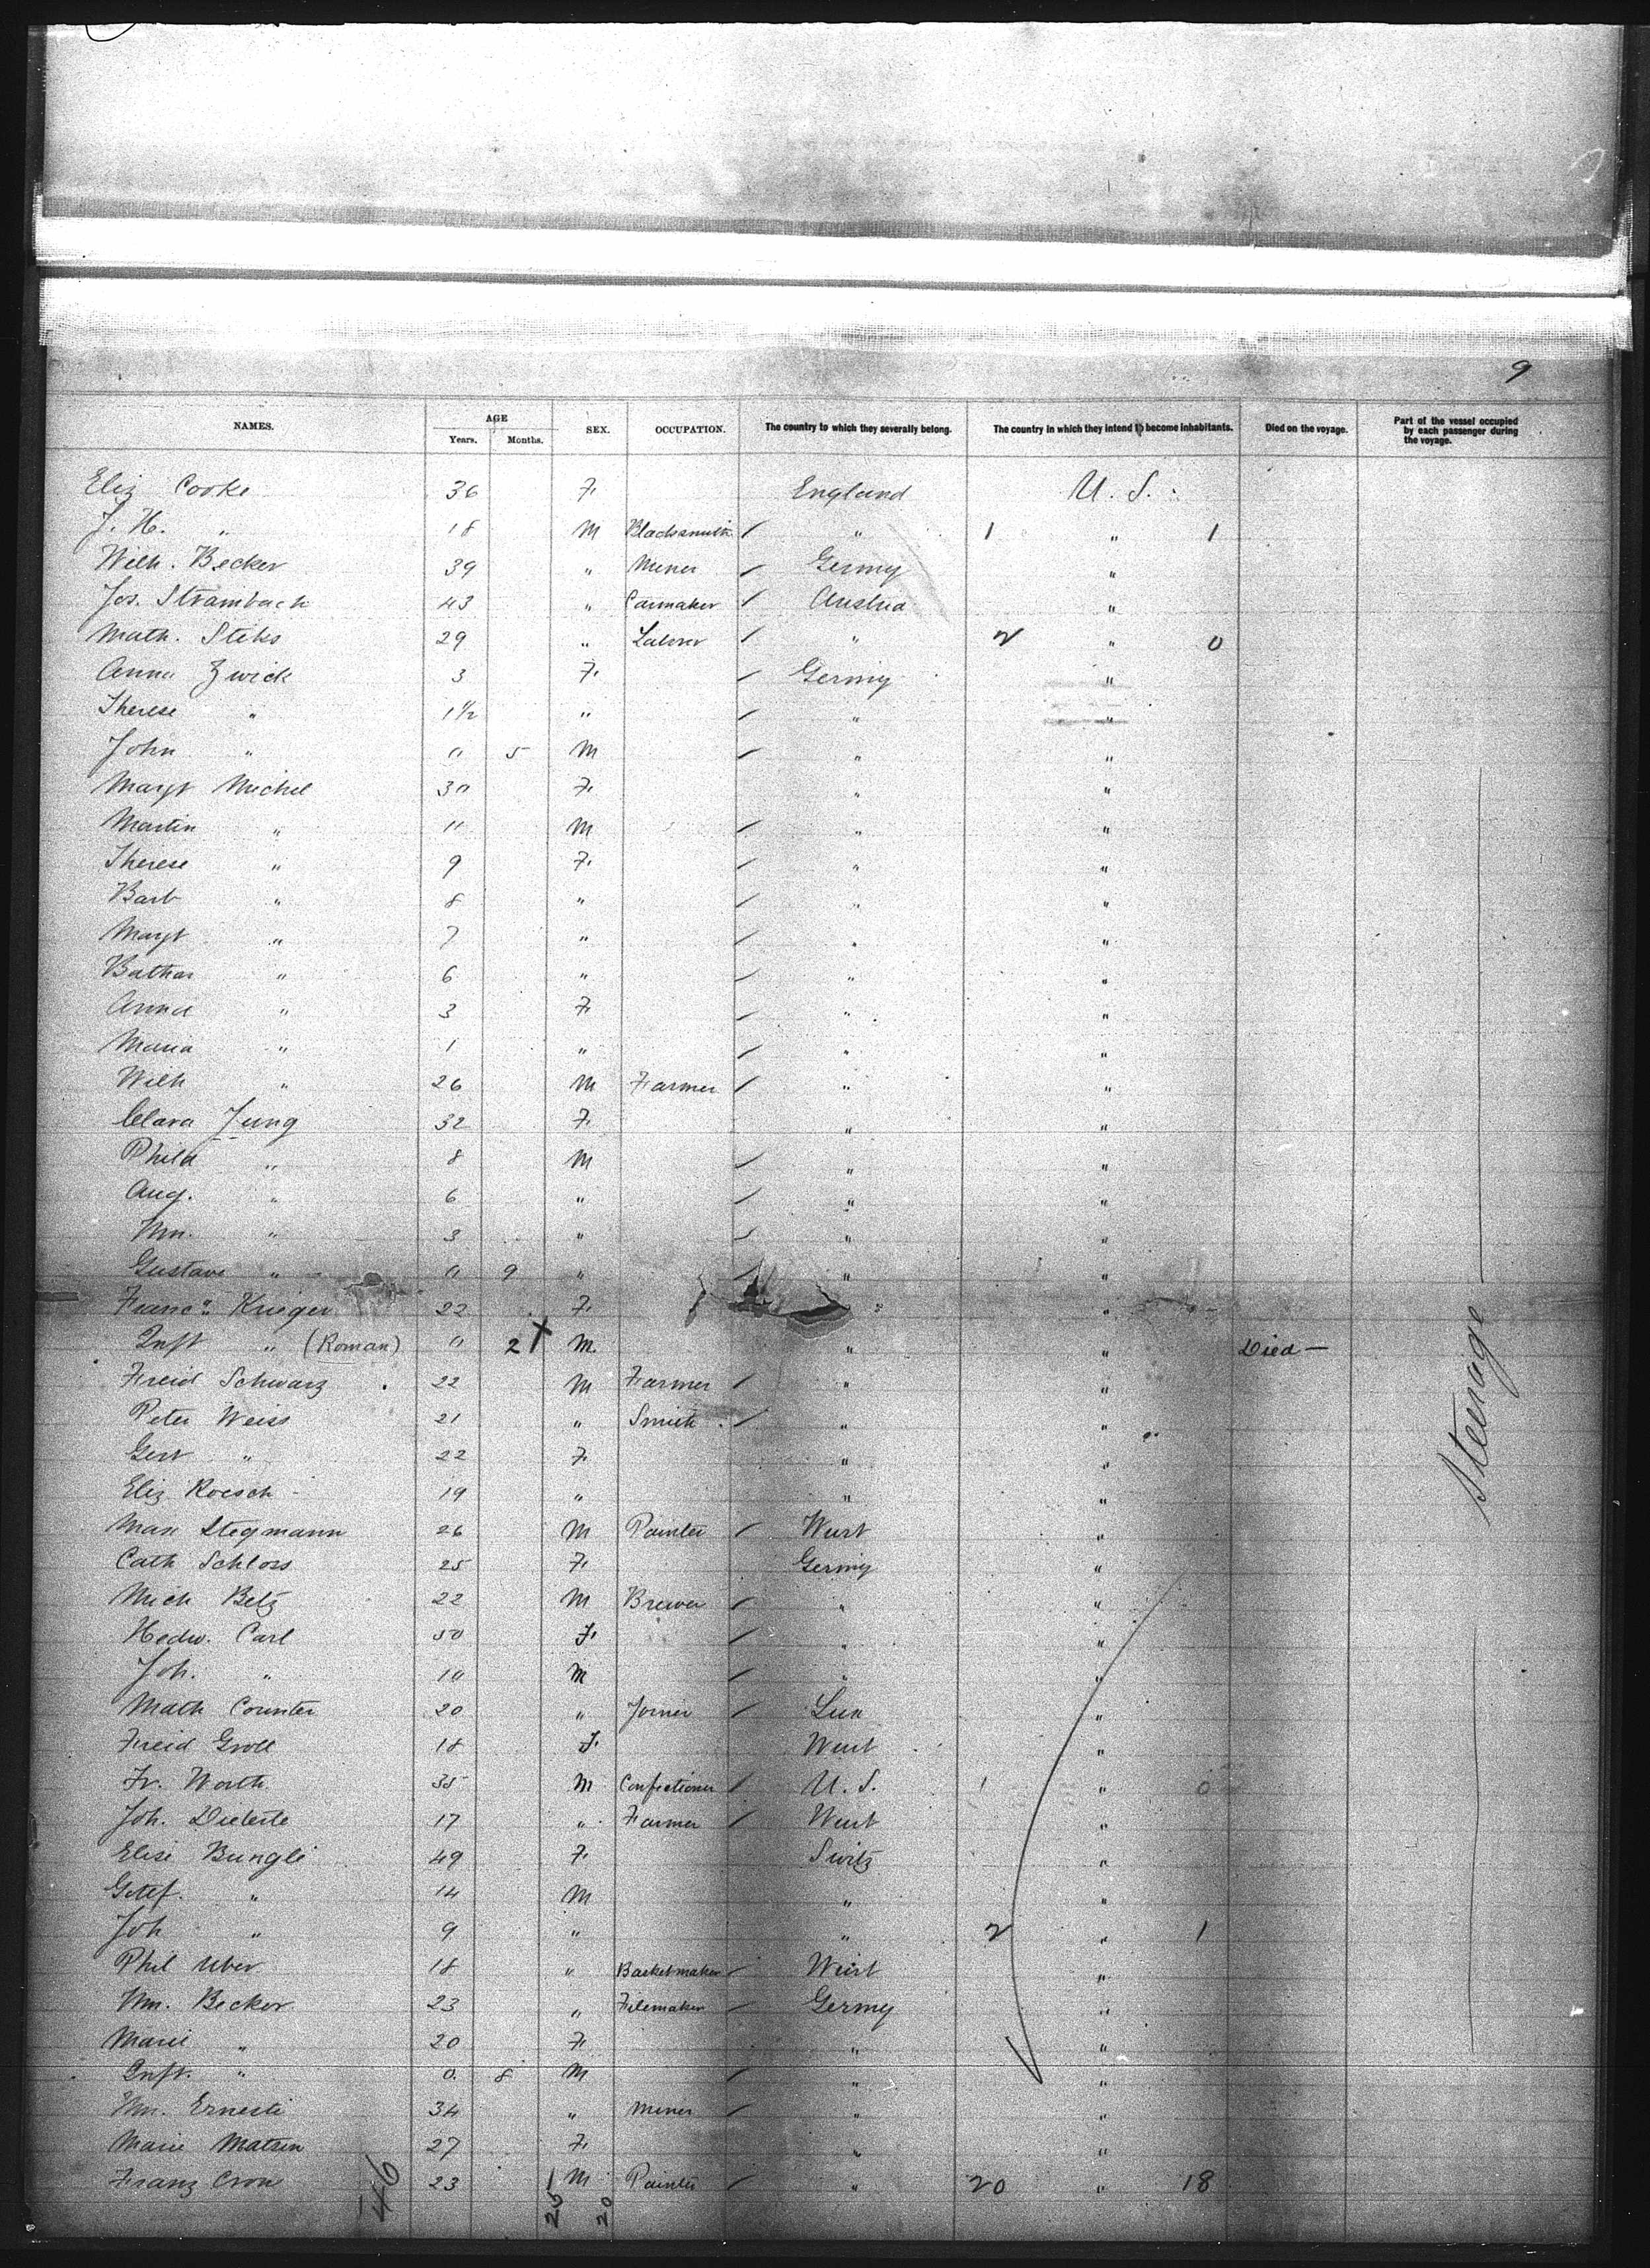 9
NAMES. AGE Years. Months. SEX. OCCUPATION. The country to which they severally belong. The country in which they intend to become inhabitants. Died on the voyage. Part of the vessel occupied by each passenger during the voyage.
Eliz Cooke 36 F. England U. S.
J. H. " 18 M Blacksmith / " 1 " 1
Wilh. Becker 39 " Miner / Germy "
Jos. Strambach 43 " Carmaker / Austria "
Math. Stehs 29 " Labour / " 2 " 0
Anna Zwick 3 F. / Germy "
Therese " 1½ " / " "
John " 0 5 M / " "
Margt Michel 30 F. " "
Martin " 11 M / " "
Therese " 9 F. / " "
Barb " 8 " / " "
Margt " 7 " / " "
Balthas " 6 " / " "
Anna " 3 F. / " "
Maria " 1 " / " "
Wilh " 26 M Farmer / " "
Clara Jung 32 F. " "
Phild " 8 M / " "
Aug. " 6 " / " "
Wm. " 3 " / " "
Gustave " 0 9 " / " "
Franca Krieger 22 F. " "
Inft " (Roman) 0 2 X M. " " Died —
Freid Schwarz 22 M Farmer / " "
Peter Weiss 21 " Smith / " "
Gert " 22 F. " "
Eliz Roesch 19 " " "
Max Stegmann 26 M Painter / Wurt "
Cath Schloss 25 F. Germy "
Mich Betz 22 M Brewer / " "
Hedw. Carl 50 F. / " "
Joh. " 10 M / " "
Math Counter 20 " Joiner / Lux "
Freid Groll 18 F. Wurt "
Fr. Worth 35 M Confectioner / U. S. 1 " 0
Joh. Dieterle 17 " Farmer / Wurt "
Elise Bungli 49 F. Switz "
Gttf. " 14 M " "
Joh " 9 " " 2 " 1
Phil Uber 18 " Basketmaker / Wurt "
Wm. Becker 23 " Filemaker / Germy "
Marie " 20 F. " "
Inft. " 0 8 M / " "
Wm. Ernesti 34 " Miner / " "
Marie Matzen 27 F. " "
Franz Cron 23 M Painter / " 20 " 18
Steerage
46 25 20